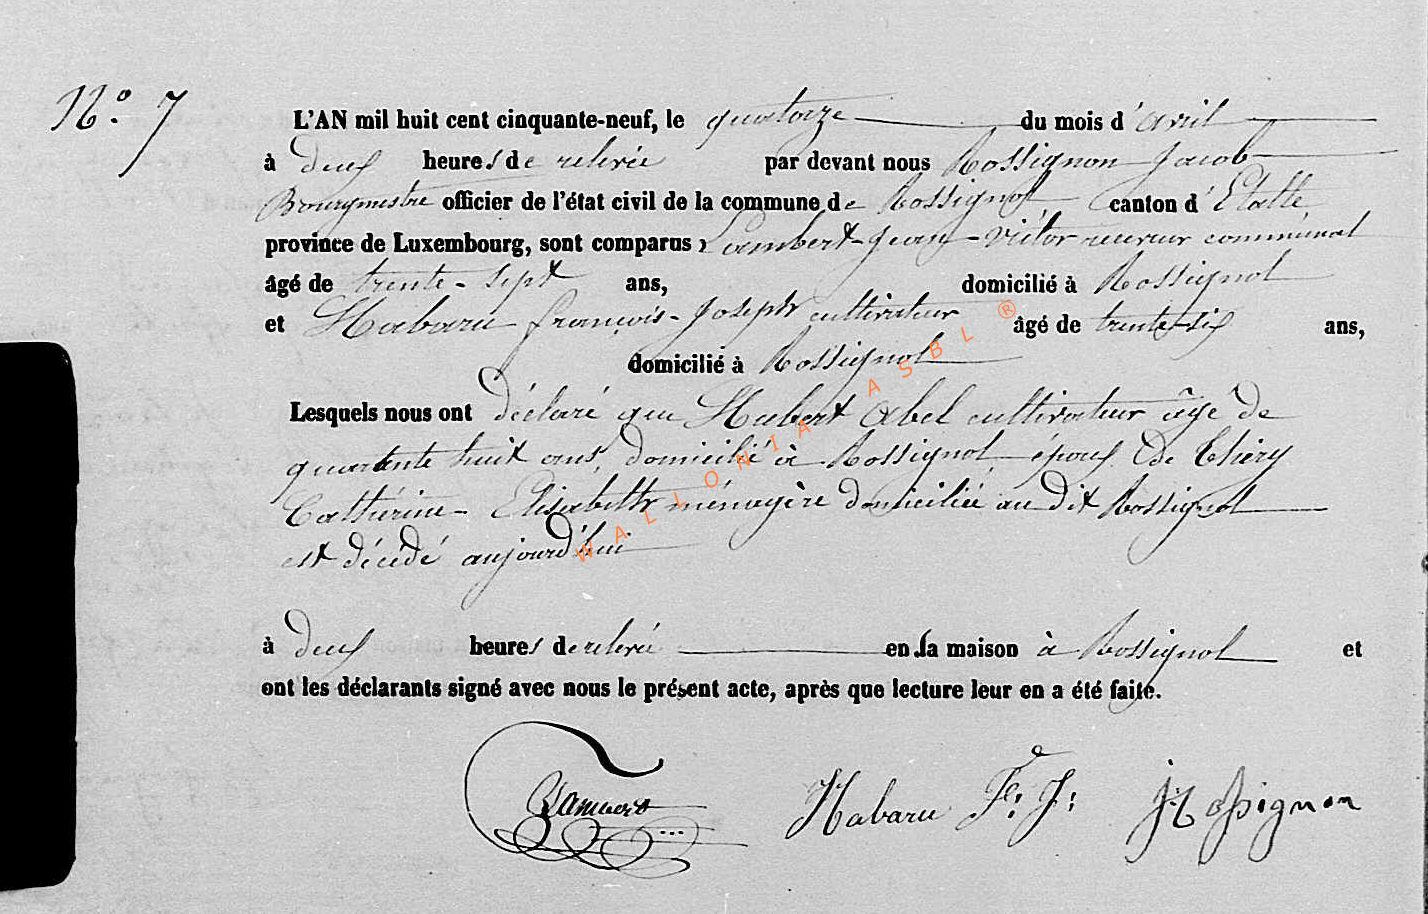 N.o 7
L'AN mil huit cent cinquante-neuf, le quatorze du mois d'avril
à deux heures de relevée par devant nous Rossignon Jacob
Bourgmestre officier de l'état civil de la commune de Rossignol canton d'Etalle
province de Luxembourg, sont comparus Lambert Jean-Victor receveur communal
âgé de trente-sept ans, domicilié à Rossignol
et Habaru françois-Joseph cultivateur âgé de trente-six ans,
domicilié à Rossignol
Lesquels nous ont déclaré que Hubert Abel cultivateur âgé de
quarante huit ans, domicilié à Rossignol, époux de Thiéry
Cathérine-Elisabeth ménagère domiciliée au dit Rossignol
est décédé aujourd'hui
à deux heures de relevée en la maison à Rossignol et
ont les déclarants signé avec nous le présent acte, après que lecture leur en a été faite.
Lambert Habaru F.: J: J Rossignon
WALLONIA ASBL ®